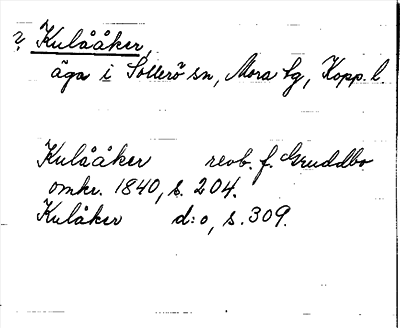 ? Kulååker,
äga i Sollerö sn, Mora tg, Kopp. l.
Kulååker revb. f. Gruddbo
omkr. 1840, s. 204.
Kulåker d:o, s. 309.